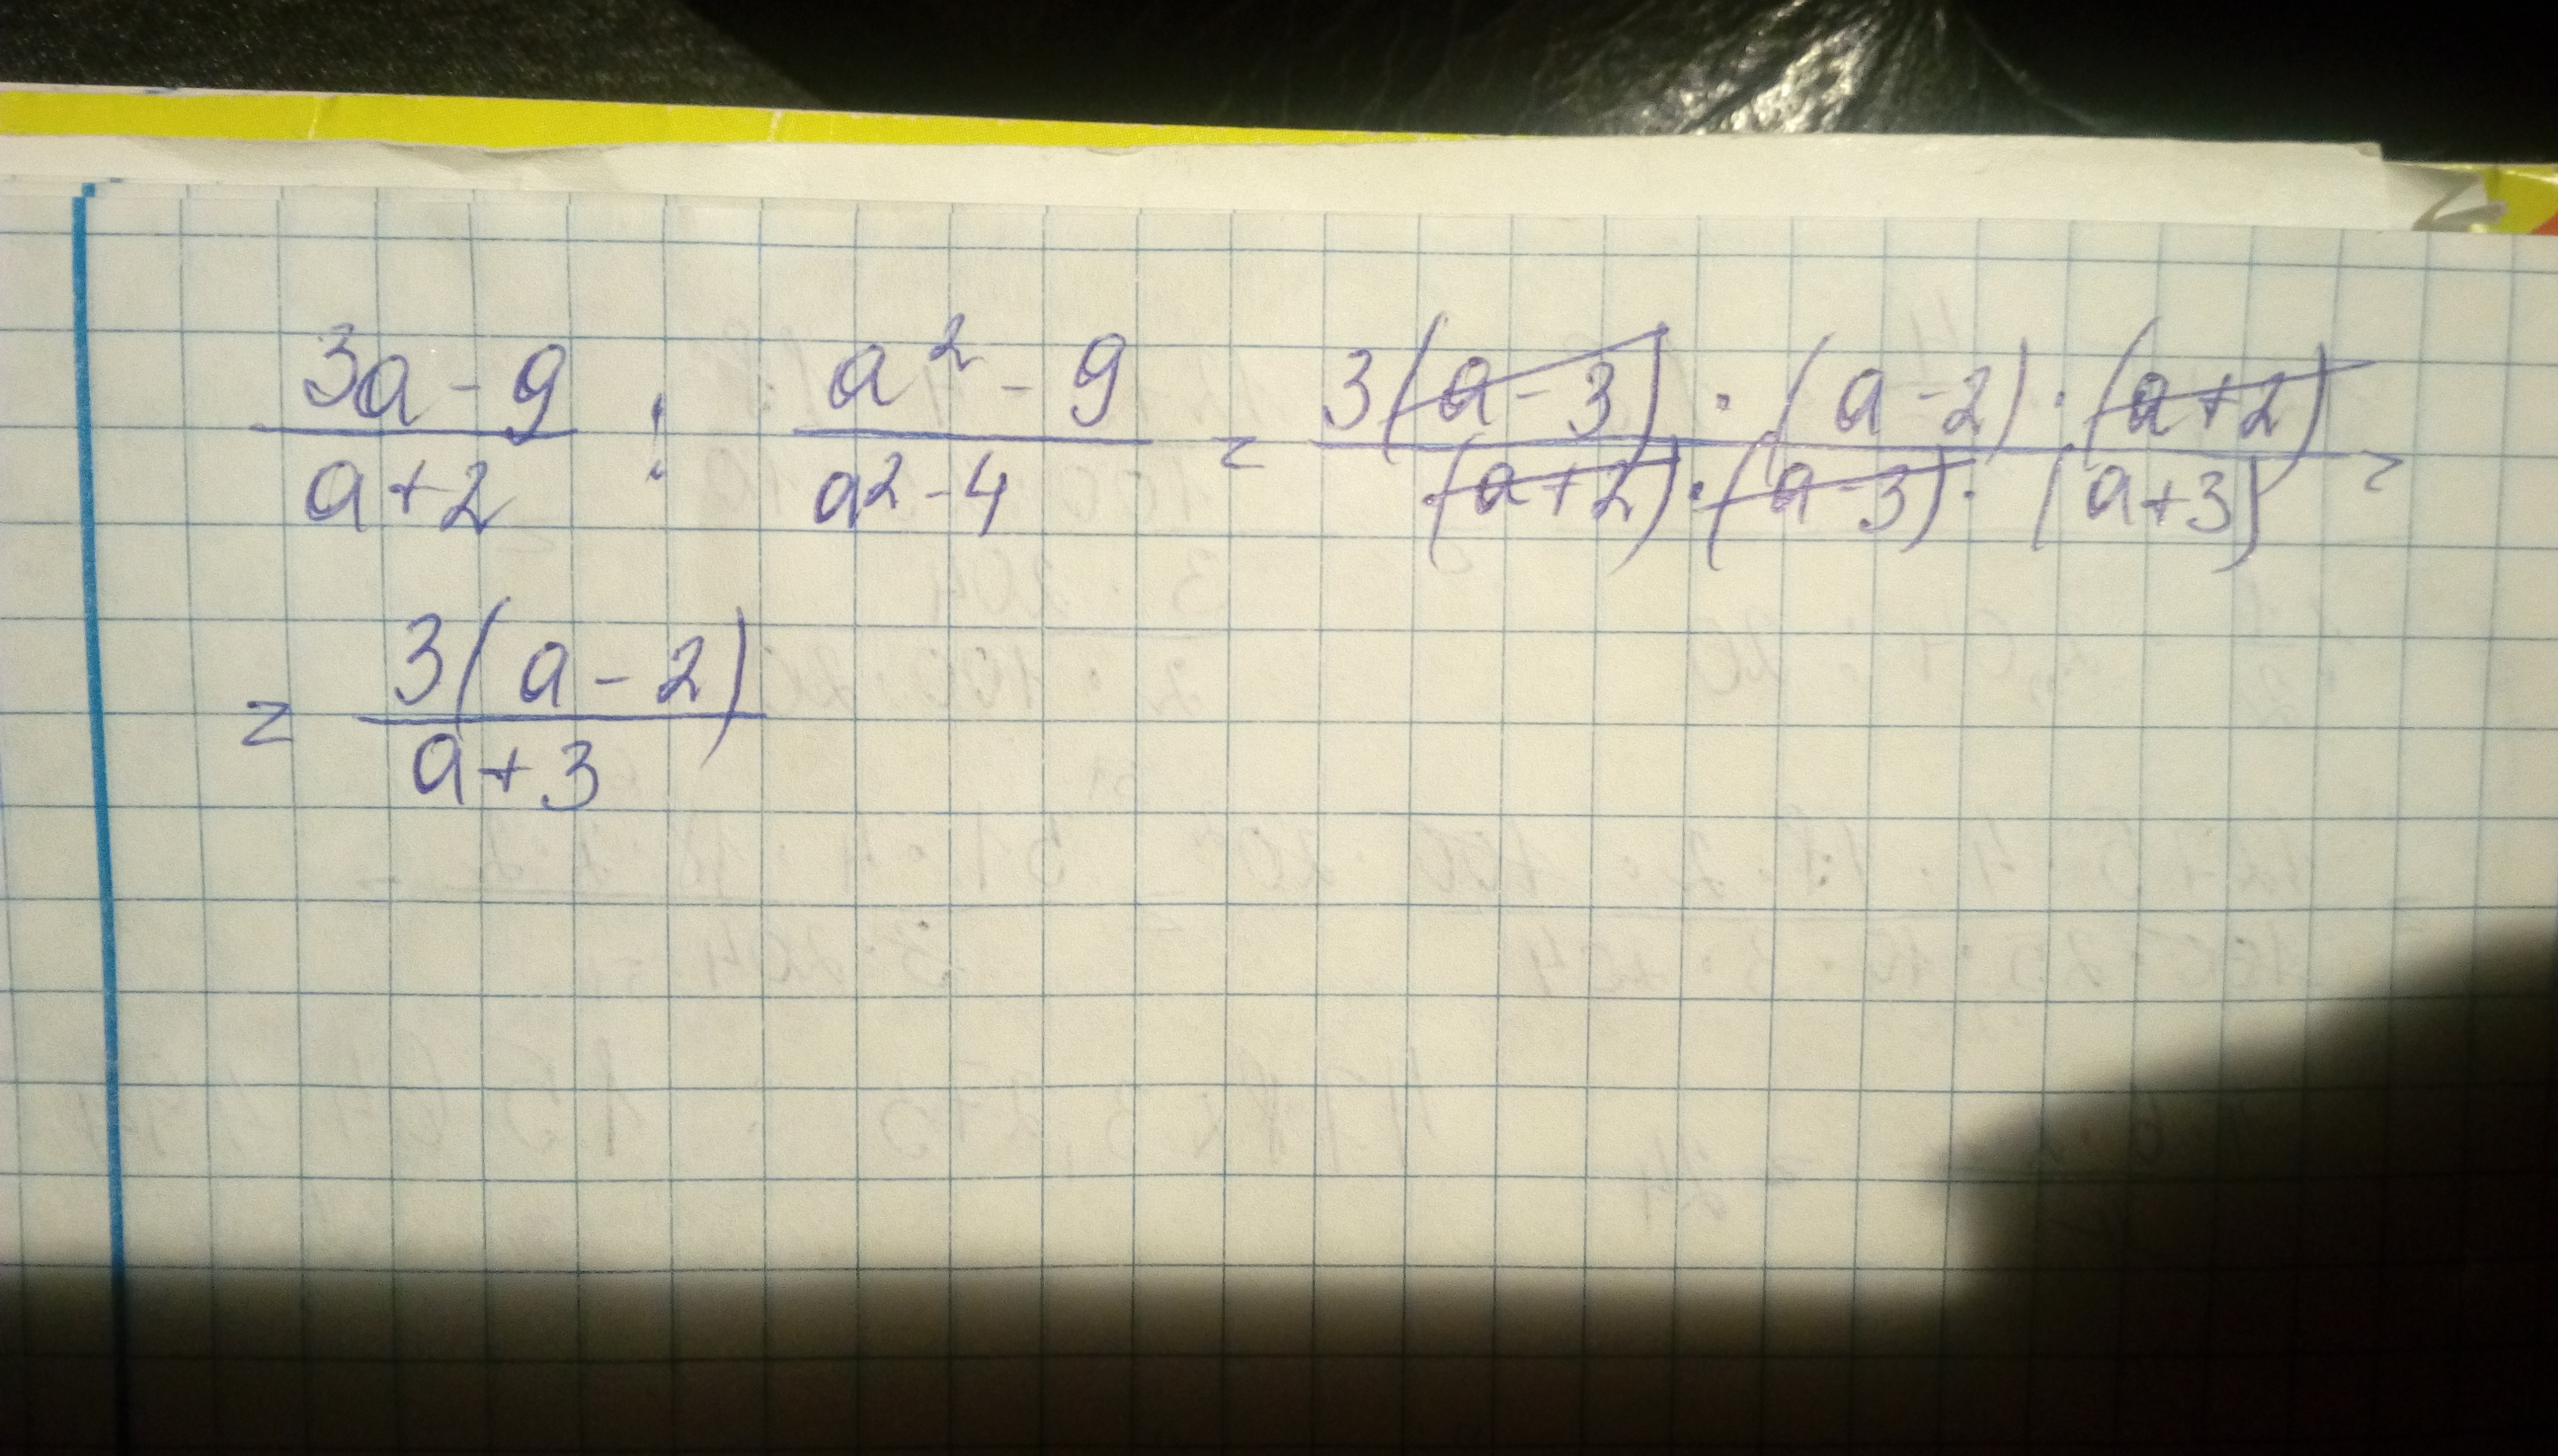 (3a - 9)/(a + 2) : (a² - 9)/(a² - 4) = (3(a - 3) · (a - 2) · (a + 2))/((a + 2) · (a - 3) · (a + 3)) =
= (3(a - 2))/(a + 3)